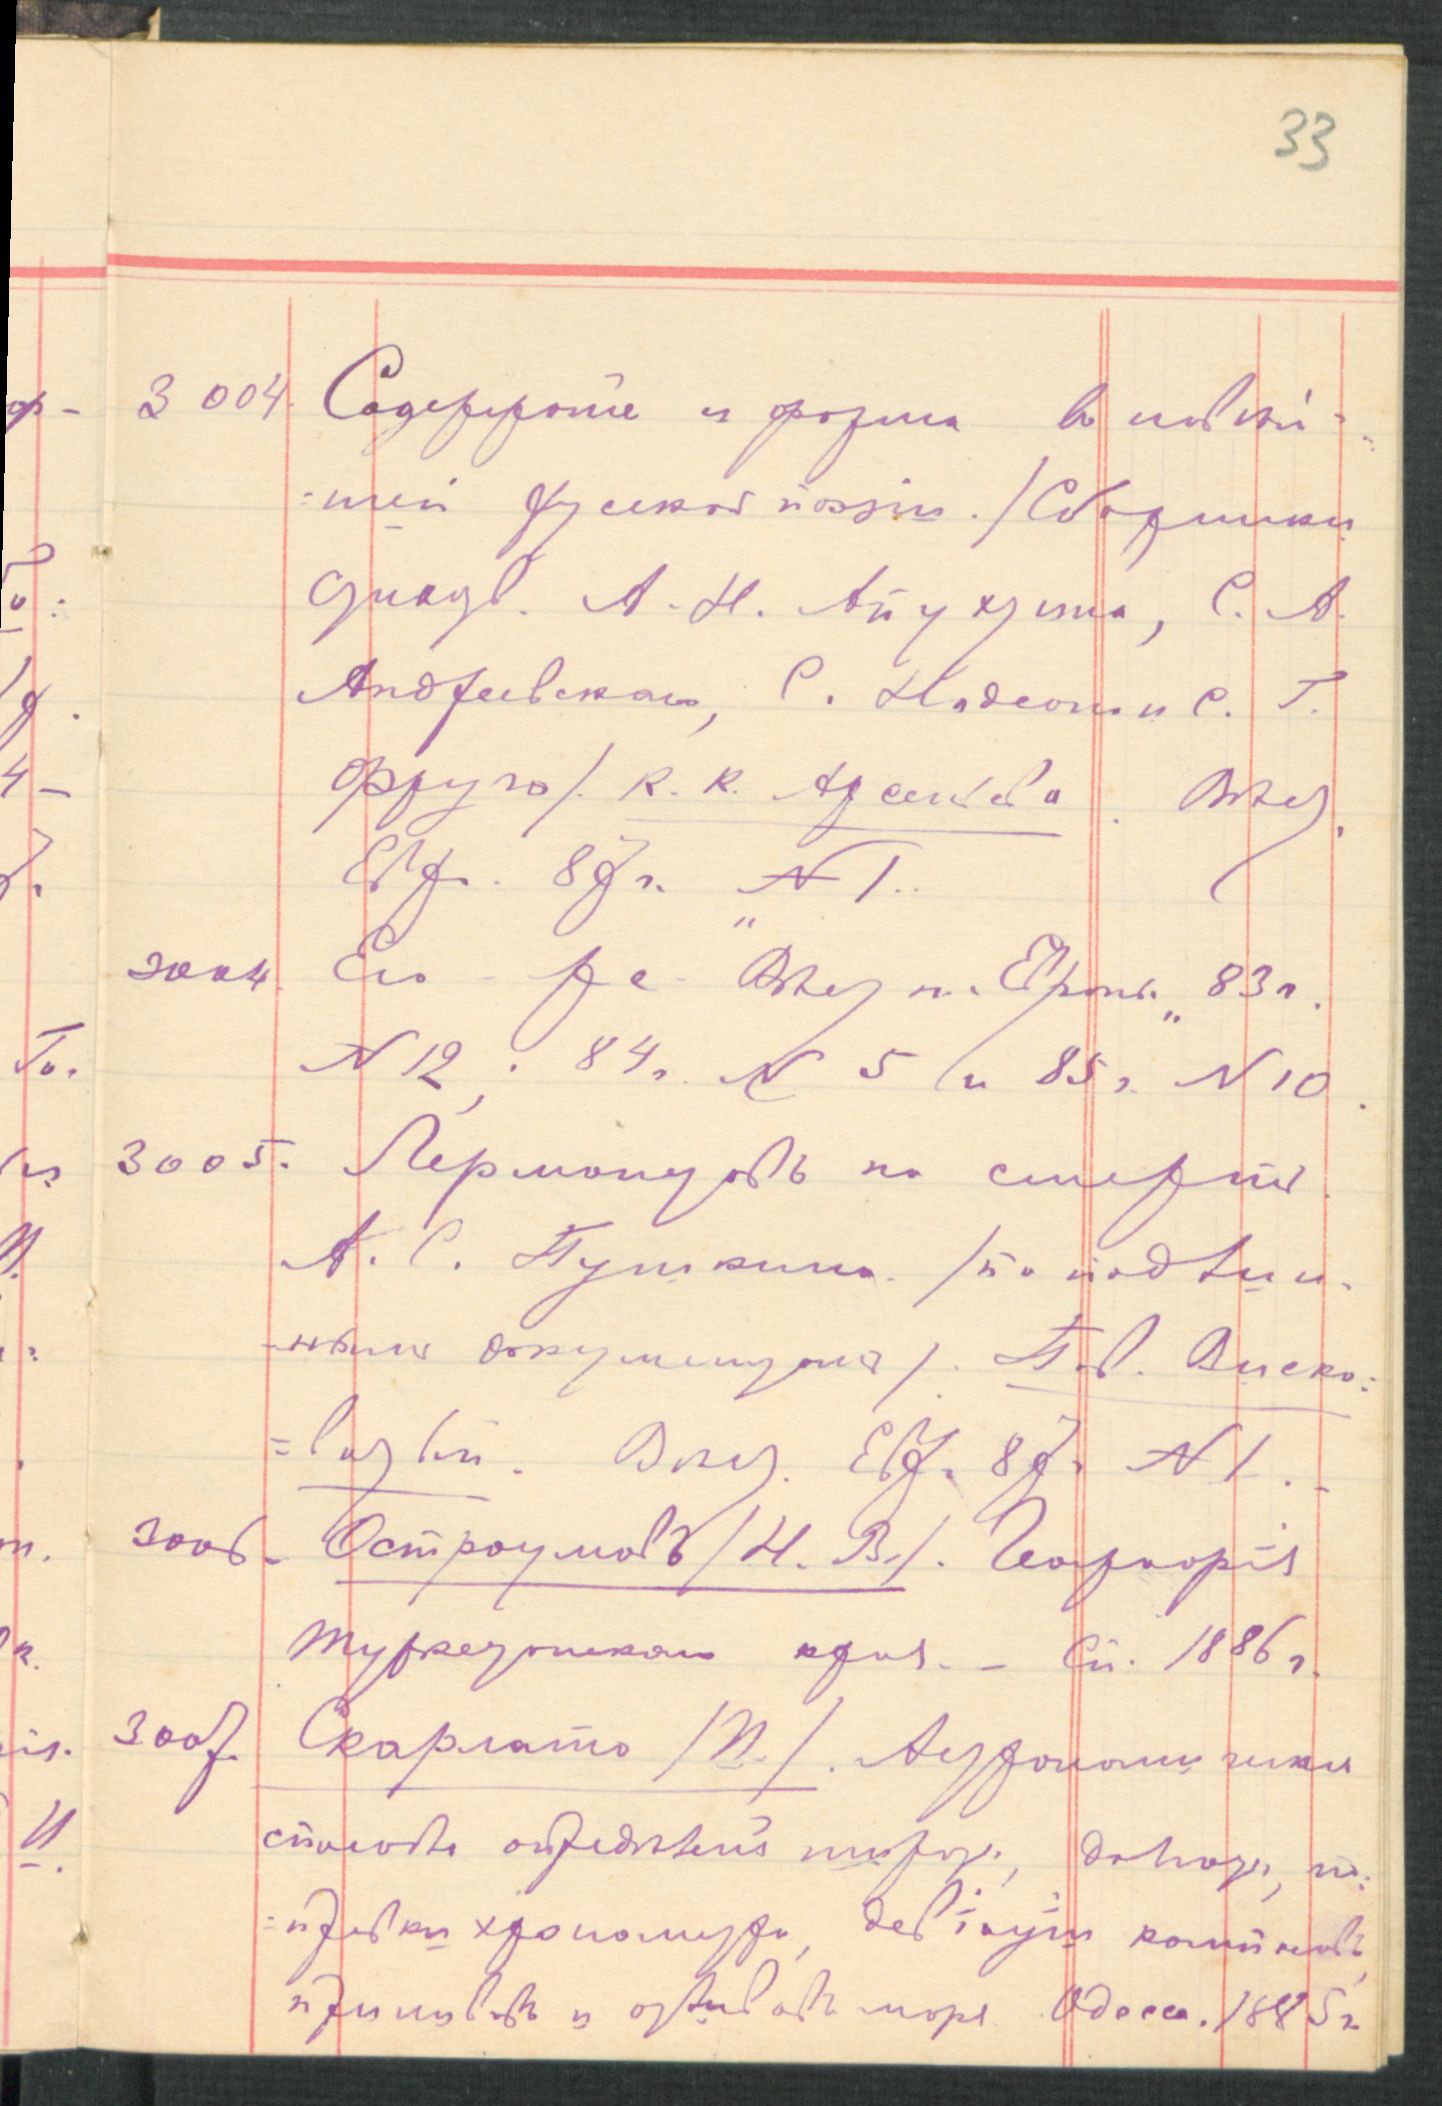 33
3004. Содержанiе и форма въ новѣй-
=шей русской поэзiи. /Сборники
А. Н. Апухтина, С. А.
Андреевскаго, С. Надсона и С. Г.
Фруга/. К. К. Арсеньева. Вѣст.
Евр. 87 г. № 1.
3004. Его-же. "Вѣстн. Европы" 83 г.
№ 12; 84 г. № 5 и 85 г. № 10.
3005. Лермонтовъ на смерть
А. С. Пушкина. /по подлин-
-нымъ документамъ/. Пав. Виско=
=ватый. Вѣст. Евр. 87 г. № 1. -
3006. Остроумовъ /Н. П./. Географiя
Туркестанскаго края. - Сп. 1886 г.
3007. Скарлато /П./. Астрономическiя
способы опредѣленiя широты, долготы, по=
=правки хронометра, девiацiи компасовъ,
приливовъ и отливовъ моря. Одесса. 1885 г.